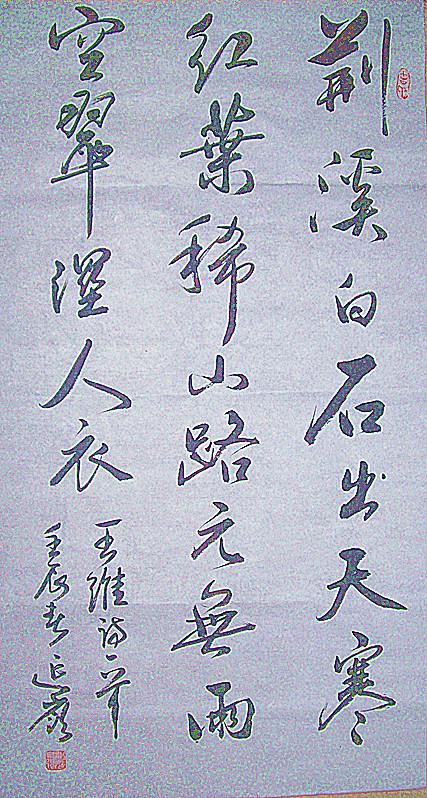 荆溪白石出天寒
红葉稀山路元無雨
空翠濕人衣
王維詩一首
壬辰春